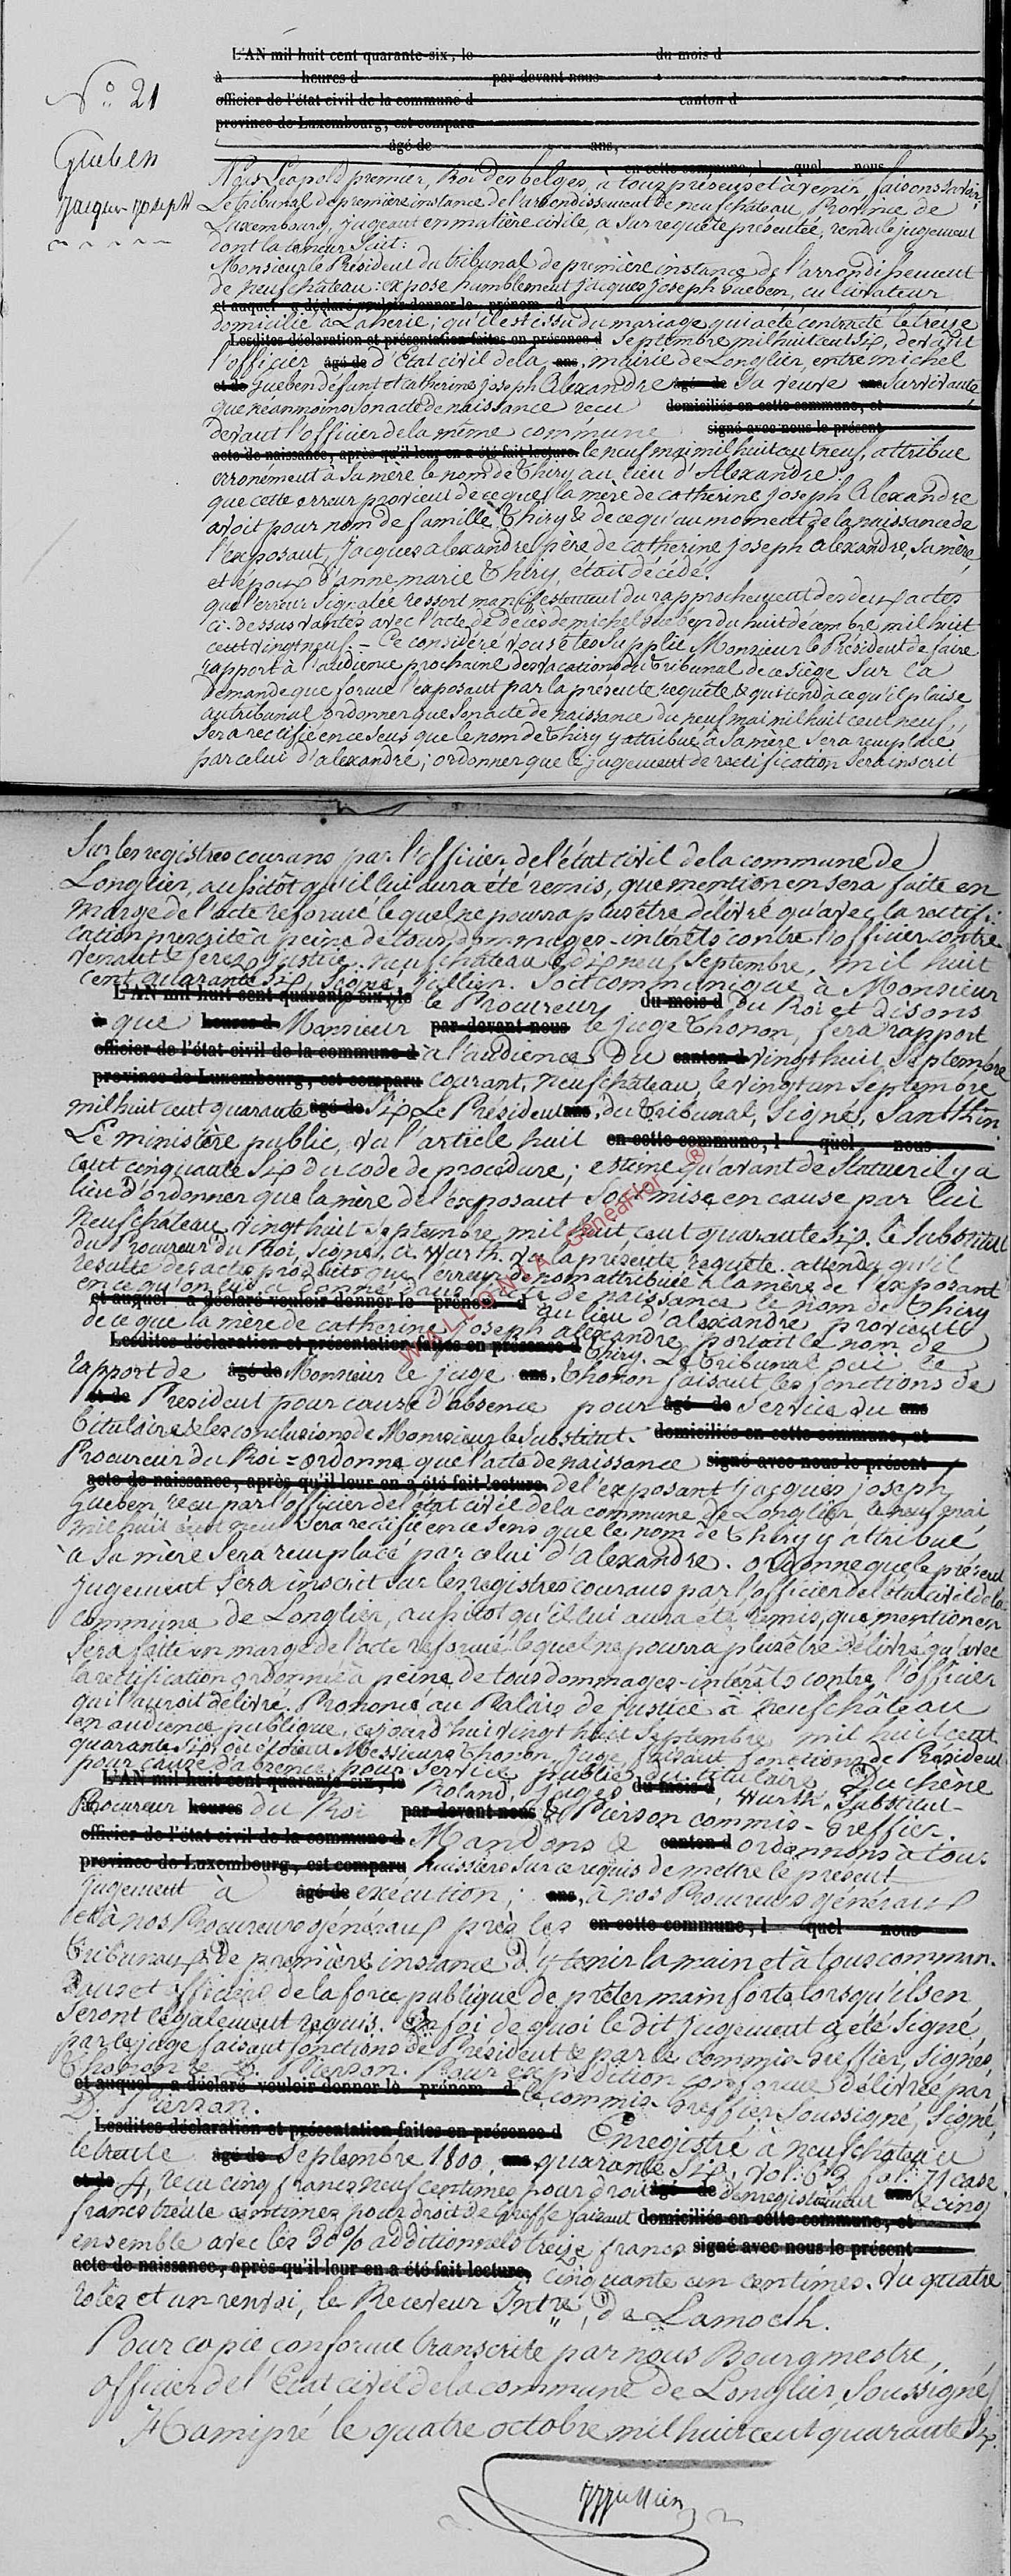 L'AN mil huit cent quarante-six, le du mois d
à heures d par devant nous
officier de l'état civil de la commune d canton d
province de Luxembourg, est comparu
âgé de ans,
en cette commune, l quel nous
N.° 21
Gueben
Jacques Joseph
Nous Léopold premier, Roi des belges, à tous présens et à venir, faisons savoir:
Le tribunal de première instance de l'arrondissement de neufchâteau, Province de
Luxembourg, jugeant en matière civile, a sur requête présentée, rendu le jugement
dont la teneur suit:
Monsieur le Président du tribunal de première instance de l'arrondissement
de neufchâteau: expose humblement jacques joseph Gueben, cultivateur
et auquel a déclaré vouloir donner le prénom d
domicilié à Laherie; qu'il est issu du mariage qui a été contracté le treize
Lesdites déclaration et présentation faites en présence d septembre mil huit cent six, devant
l'officier âgé de d'Etat civil de la ans, mairie de Longlier, entre michel
et de Gueben défunt et catherine joseph Alexandre âgé de sa veuve ans survivante,
que néanmoins son acte de naissance recu domiciliés en cette commune, et
devant l'officier de la même commune signé avec nous le présent
acte de naissance, après qu'il leur en a été fait lecture. le neuf mai mil huit cent neuf, attribue
erronément à sa mère le nom de Thiry au lieu d'Alexandre.
que cette erreur provient de ce que la mère de catherine joseph Alexandre
avoit pour nom de famille Thiry & de ce qu'au moment de la naissance de
l'exposant, Jacques alexandre père de catherine joseph alexandre, sa mère,
et époux d'anne marie Thiry, était décédé.
que l'erreur signalée ressort manifestement du rapprochement des deux actes
ci-dessus vantés avec l'acte de décès de michel Gueben du huit décembre mil huit
cent vingt neuf. = Ce considéré vous êtes supplié Monsieur le Président de faire
rapport à l'audience prochaine des vacations du tribunal de ce siège sur la
demande que forme l'exposant par la présente requête & qui tend à ce qu'il plaise
au tribunal ordonner que son acte de naissance du neuf mai mil huit cent neuf,
sera rectifié en ce sens que le nom de Thiry y attribué à sa mère sera remplacé
par celui d'alexandre; ordonner que le jugement de rectification sera inscrit
Sur les registres courans par l'officier de l'état civil de la commune de
Longlier, aussitôt qu'il lui aura été remis, que mention en sera faite en
marge de l'acte réformé lequel ne pourra plus être délivré qu'avec la rectifi-
cation prescrite à peine de tous dommages-intérêts contre l'officier contre
venant & ferez justice. neufchâteau dix neuf septembre, mil huit
cent quarante six, signé, Jullien. Soit communiqué à Monsieur
L'AN mil huit cent quarante-six, le le Procureur du mois d du Roi et disons
à que heures d Monsieur par devant nous le juge Thonon, fera rapport
officier de l'état civil de la commune d à l'audience du canton d vingt huit septembre
province de Luxembourg, est comparu courant. neufchâteau, le vingt un septembre
mil huit cent quarante âgé de six. Le Président ans, du tribunal, signé,
Le ministère public, vu l'article huit en cette commune, l quel nous
cent cinquante six du code de procédure; estime qu'avant de statuer il y a
lieu d'ordonner que la mère de l'exposant soit mise en cause par lui
neufchâteau, vingt huit septembre mil huit cent quarante six. le Substitut
du Procureur du Roi, signé, A. Wurth. Vu la présente requête. attendu qu'il
résulte des actes produits que l'erreur de nom attribuée à la mère de l'exposant
en ce qu'on lui a donné dans l'acte de naissance le nom de Thiry
et auquel a déclaré vouloir donner le prénom d au lieu d'alexandre provient
de ce que la mère de catherine joseph alexandre portait le nom de
Lesdites déclaration et présentation faites en présence d Thiry. Le tribunal oui le
rapport de âgé de Monsieur le juge ans, Thonon faisant les fonctions de
et de Président pour cause d'absence pour âgé de service du ans
titulaire & les conclusions de Monsieur le Substitut. domiciliés en cette commune, et
Procureur du Roi = ordonne que l'acte de naissance signé avec nous le présent
acte de naissance, après qu'il leur en a été fait lecture. de l'exposant jacques joseph
Gueben recu par l'officier de l'état civil de la commune de Longlier, le neuf mai
mil huit cent neuf sera rectifié en ce sens que le nom de Thiry y attribué
à sa mère sera remplacé par celui d'alexandre. ordonne que le présent
jugement sera inscrit sur les registres courans par l'officier de l'état civil de la
commune de Longlier, aussitot qu'il lui aura été remis, que mention en
sera faite en marge de l'acte réformé lequel ne pourra plus être délivré qu'avec
la rectification ordonnée à peine de tous dommages-intérêts contre l'officier
qui l'auroit délivré. Prononcé au Palais de justice à neufchâteau
en audience publique, ce jourd'hui vingt huit septembre mil huit cent
quarante six, où étoient Messieurs Thonon, juge faisant fonctions de Président
pour cause d'absence pour service public du titulaire, Duchène
L'AN mil huit cent quarante-six, le Roland, juges du mois d, Wurth, Substitut
Procureur heures du Roi par devant nous & Pierson commis-Greffier.
officier de l'état civil de la commune d Mandons & canton d ordonnons à tous
province de Luxembourg, est comparu huissiers sur ce requis de mettre le présent
jugement à âgé de exécution; ans, à nos Procureurs généraux
et à nos Procureurs généraux près les en cette commune, l quel nous
tribunaux de première instance d'y tenir la main et à tous comman-
dans et officiers de la force publique de prêter main forte lorsqu'ils en
seront légalement requis. En foi de quoi le dit jugement a été signé
par le juge faisant fonctions de Président & par le commis Greffier, signés,
Thonon & D. Pierson. Pour expédition conforme délivrée par
et auquel a déclaré vouloir donner le prénom d le commis-Greffier soussigné, signé,
D. Pierson.
Lesdites déclaration et présentation faites en présence d Enregistré à neufchâteau
le trente âgé de septembre 1800, ans quarante six, vol: 63 fol: 71 case
et de 4, recu cinq francs neuf centimes pour droit âgé de d'enregistrement ans & cinq
francs trente centimes pour droit de greffe faisant domiciliés en cette commune, et
ensemble avec les 30 % additionnels treize francs signé avec nous le présent
acte de naissance, après qu'il leur en a été fait lecture. cinquante un centimes. vu quatre
rôles et un renvoi, le Receveur Intre,
Pour copie conforme transcrite par nous Bourgmestre,
officier de l'Etat civil de la commune de Longlier, Soussigné
Hamipré le quatre octobre mil huit cent quarante six.
WALLONIA - GénéaFlor ®